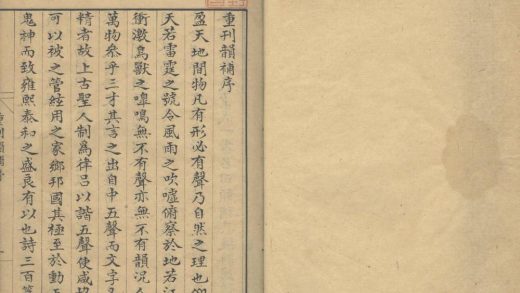 重刊韻補序
盈天地間物凡有形必有聲乃自然之理也仰
天若雷霆之號令風雨之吹噓俯察於地若江
衝激鳥獸之嘷鳴無不有聲亦無不有韻况人
萬物參乎三才其言之出自中五聲而文字又
精者故上古聖人制為律呂以諧五聲使咸協
可以被之管絃用之家鄉邦國其極至於動天
鬼神而致雍熙泰和之盛良有以也詩三百篇